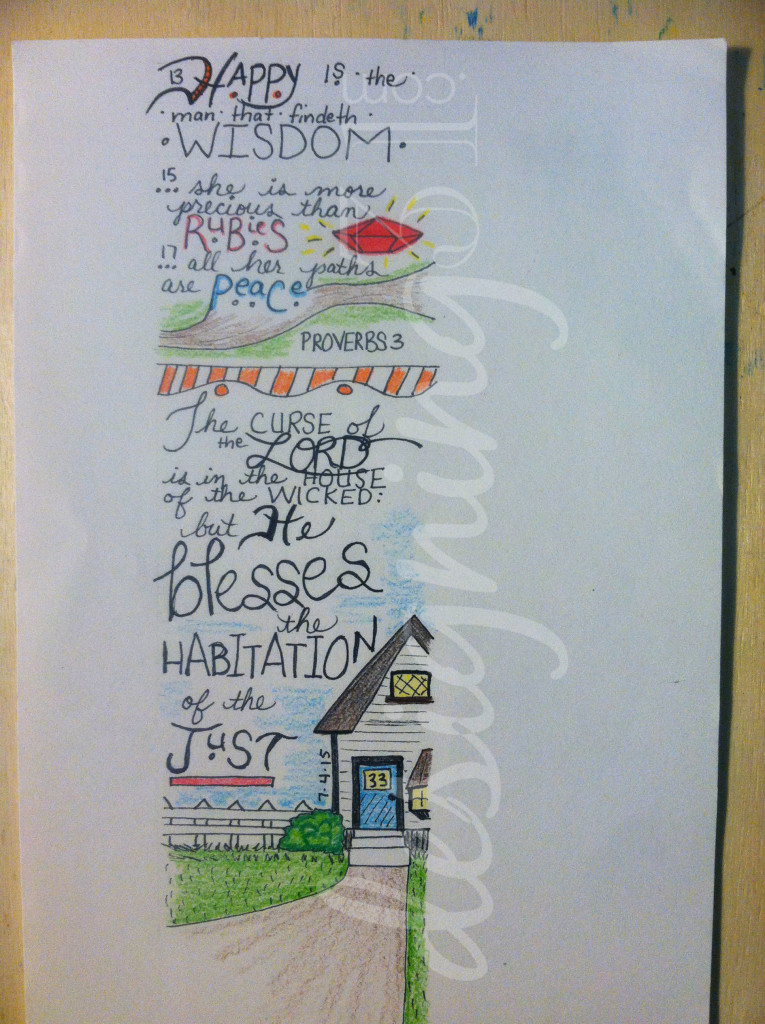 13 HAPPY IS · the ·
· man · that · findeth ·
· WISDOM ·
15
... she is more
precious than
RUBIES
17
... all her paths
are PEACE
PROVERBS 3
The CURSE of
the LORD
is in the HOUSE
of the WICKED:
but He
blesses
the
HABITATION
of the
JUST
7.4.15
33
designing
.com